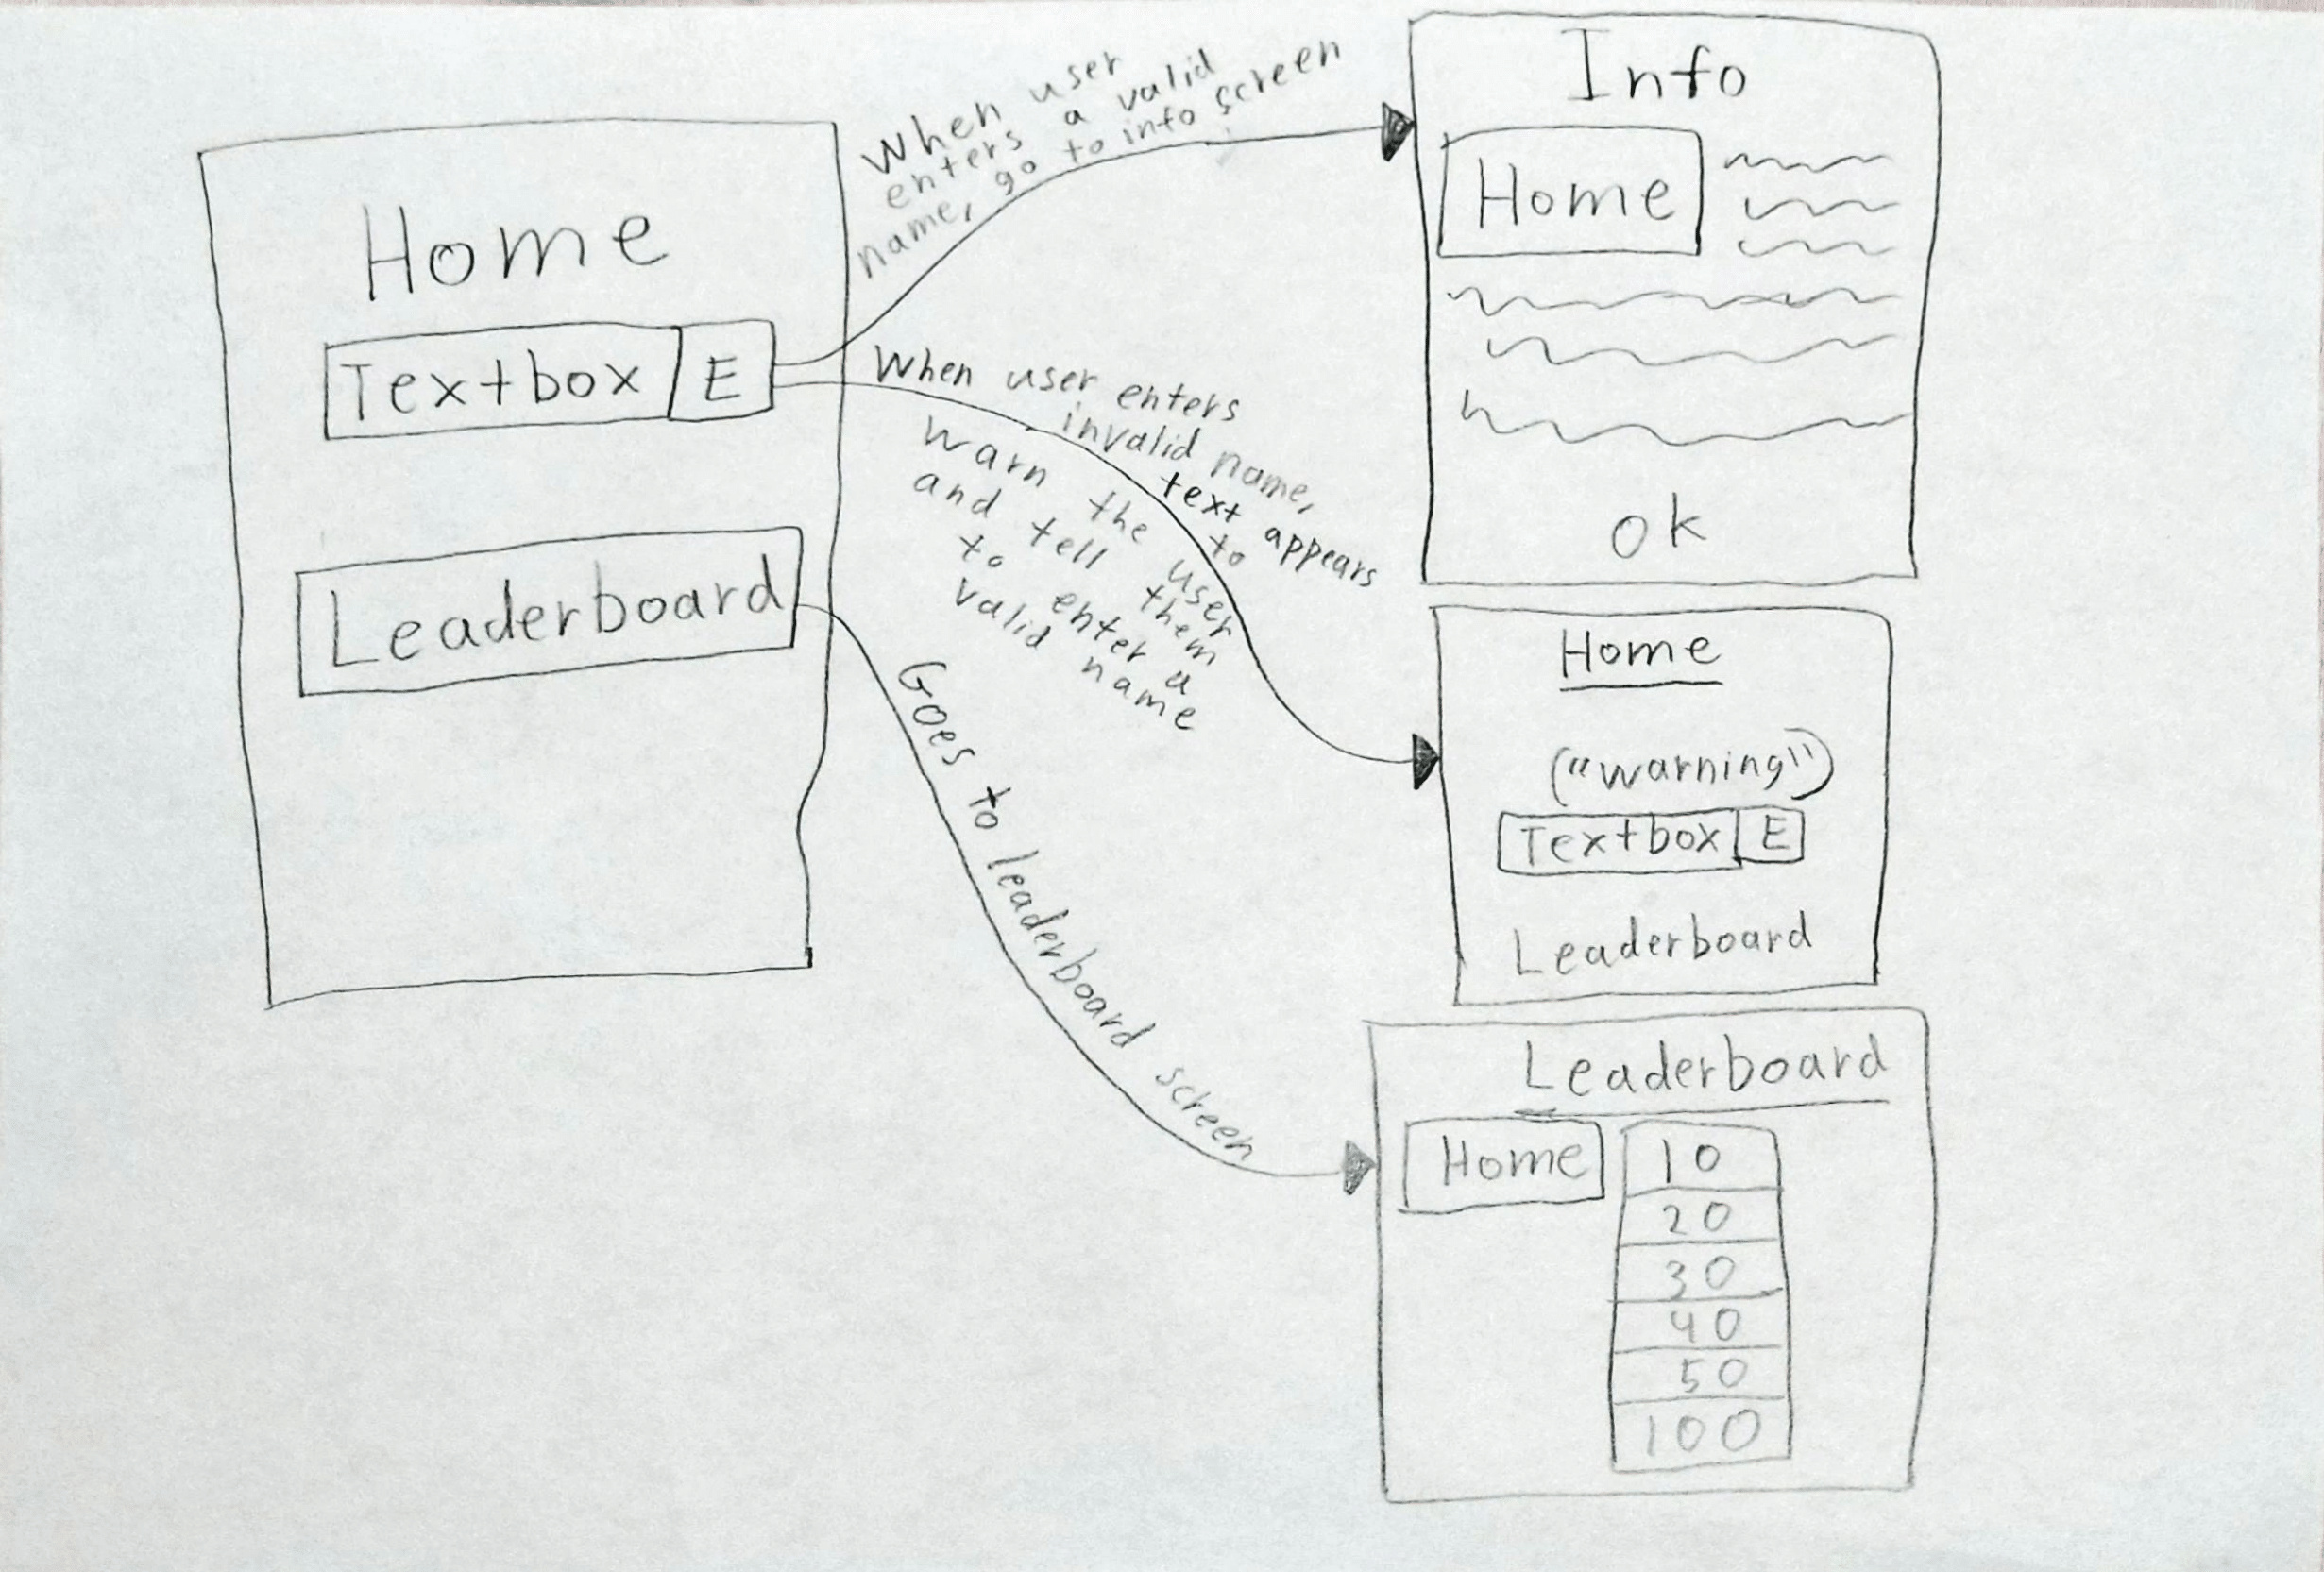 Home
Textbox E
Leaderboard
When user
enters a valid
name, go to info screen
When user enters
invalid name,
text appears
to
warn the user
and tell them
to enter a
valid name
Goes to leaderboard screen
Info
Home
ok
Home
("warning")
Textbox E
Leaderboard
Leaderboard
Home
10
20
30
40
50
100